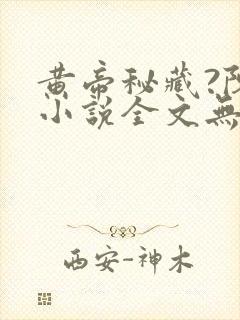 黄帝秘藏?阝
小说全文無
西安-神木